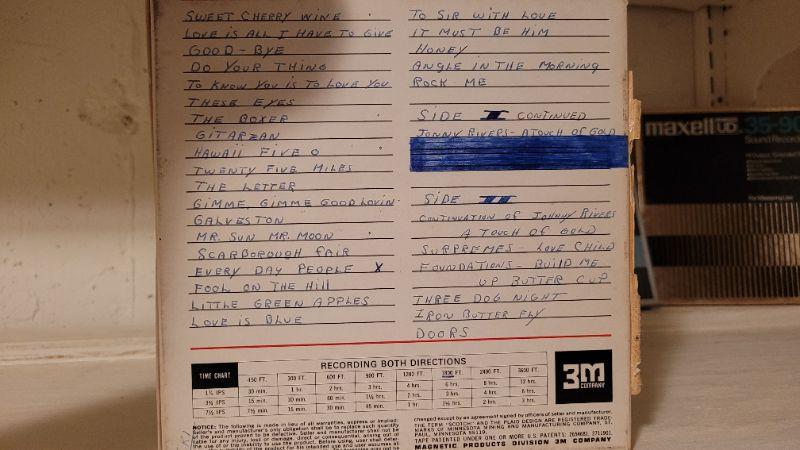 SWEET CHERRY WINE
LOVE IS ALL I HAVE TO GIVE
GOOD-BYE
DO YOUR THING
TO KNOW YOU IS TO LOVE YOU
THESE EYES
THE BOXER
GITARZAN
HAWAII FIVE O
TWENTY FIVE MILES
THE LETTER
GIMME, GIMME GOOD LOVIN
GALVESTON
MR. SUN MR. MOON
SCARBOROUGH FAIR
EVERY DAY PEOPLE X
FOOL ON THE HILL
LITTLE GREEN APPLES
LOVE IS BLUE
TO SIR WITH LOVE
IT MUST BE HIM
HONEY
ANGLE IN THE MORNING
ROCK ME
SIDE I CONTINUED
JONNY RIVERS - A TOUCH OF GOLD
SIDE II
CONTINUATION OF JOHNNY RIVERS
A TOUCH OF GOLD
SURPREMES - LOVE CHILD
FOUNDATIONS - BUILD ME
UP BUTTER CUP
THREE DOG NIGHT
IRON BUTTER FLY
DOORS
RECORDING BOTH DIRECTIONS
TIME CHART 450 FT. 300 FT. 600 FT. 900 FT. 1200 FT. 1800 FT. 2400 FT. 3600 FT.
1⅞ IPS 30 min. 1 hr. 2 hrs. 3 hrs. 4 hrs. 6 hrs. 8 hrs. 12 hrs.
3¾ IPS 15 min. 30 min. 60 min. 1½ hrs. 2 hrs. 3 hrs. 4 hrs. 6 hrs.
7½ IPS 7½ min. 15 min. 30 min. 45 min. 1 hr. 1½ hrs. 2 hrs. 3 hrs.
3M
COMPANY
NOTICE: The following is made in lieu of all warranties, express or implied:
Seller's and manufacturer's only obligation shall be to replace such quantity
of the product proved to be defective. Seller and manufacturer shall not be
liable for any injury, loss or damage, direct or consequential, arising out of
the use of or the inability to use the product. Before using, user shall deter-
changed except by an agreement signed by officers of seller and manufacturer.
THE TERM "SCOTCH" AND THE PLAID DESIGN ARE REGISTERED TRADE-
MARKS OF MINNESOTA MINING AND MANUFACTURING COMPANY, ST.
PAUL, MINNESOTA 55119.
TAPE PATENTED UNDER ONE OR MORE U.S. PATENTS: 2654681, 2711901.
MAGNETIC PRODUCTS DIVISION 3M COMPANY
maxell UD 35-90
Sound Recording